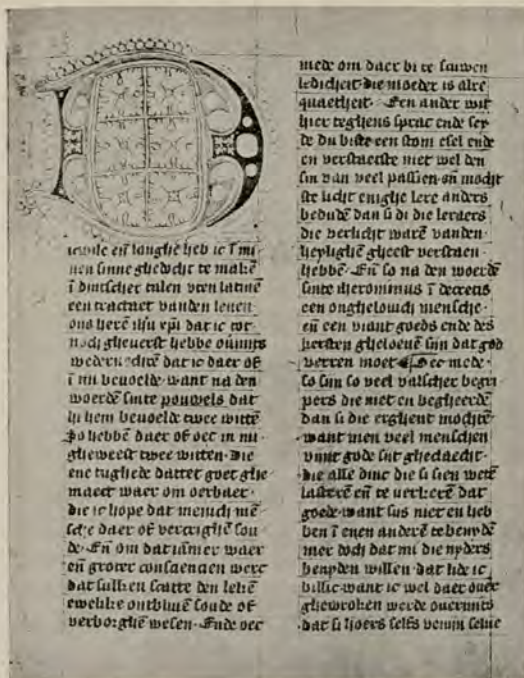 D
icwile eñ langhe heb ic ī mi
nen sinne ghedocht te makē
ī duutscher talen uten latine
een tractaet vanden leuen
ons herē ihū xp̄i dat ic tot
noch gheuerst hebbe oūmits
dat ic daer of
ī mi beuoelde want na den
woerdē sinte pouwels dat
hi hem beuoelde twee wittē
So hebbē daer of oec in mi
gheweest twee witten· Die
ene tughede dattet goet ghe
maect waer om oerbaer·
die ic hope dat menich mē
sche daer of vercrighē sou
de· Eñ om dat iāmer waer
eñ groter consciencien werc
dat sulken scatte den lekē
ewelike ontbliuē soude of
verborghē wesen· Ende oec
mede om daer bi te scuwen
ledicheit die moeder is alre
quaetheit· Een ander wit
hier teghens sprac ende sey
de du biste een stom esel ende
en verstaetste niet wel den
sin van veel passien· eñ mocht
ste licht enighe lere anders
bedudē dan si di die leraers
die verlicht warē vanden
heylighē gheest verstaen
hebbē· Eñ so na den woerdē
sinte iheronimus ī decretis
een onghelouich mensche·
eñ een viant goeds ende des
kersten gheloeuē sijn dat god
verren moet· Oec mede·
so sijn so veel valscher begri
pers die niet en begheerdē
dan si die erghent mochtē
want men veel menschen
vint gode sijt ghedaecht·
die alle dinc die si sien wetē
lasterē eñ te verkerē dat
goede want sijs niet en heb
ben ī enen anderē te benydē
mer doch dat mi die nyders
benyden willen· dat lide ic
billic want ic wel daer ouer
ghewroken werde ouermits
dat si hoers selfs venijn selue